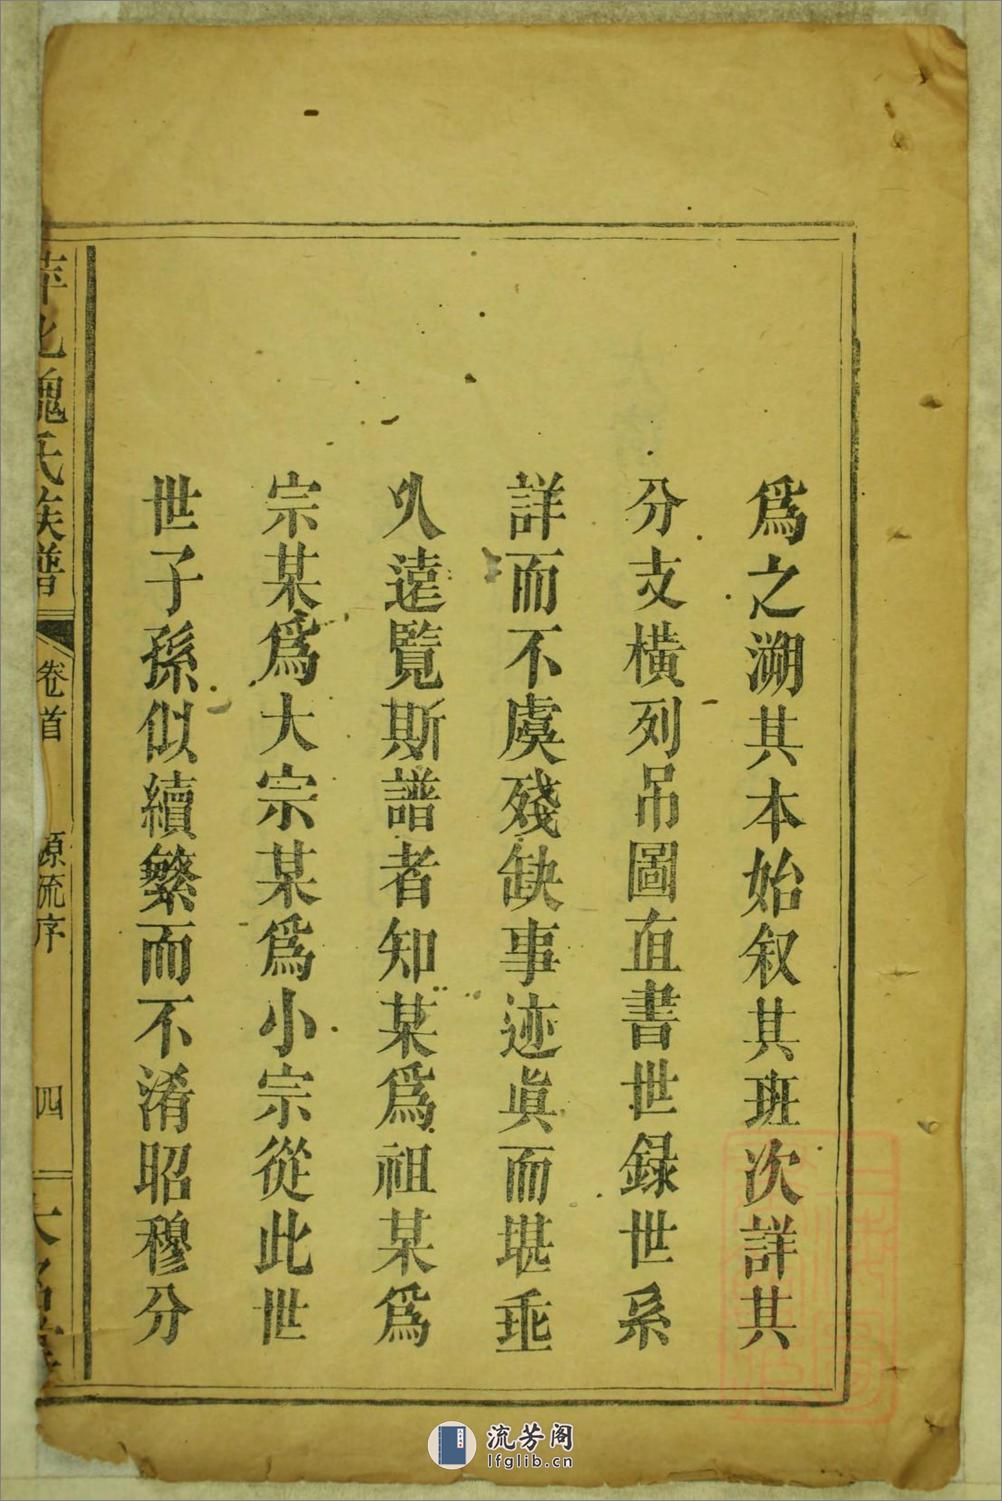 爲之溯其本始叙其班次詳其
分支橫列吊圖直書世録世系
詳而不虞殘缺事迹眞而堪垂
久遠覽斯譜者知某爲祖某爲
宗某爲大宗某爲小宗從此世
世子孫似續繁而不淆昭穆分
萍北魏氏族譜
卷首
源流序
四
大名堂
流芳阁
lfglib.cn